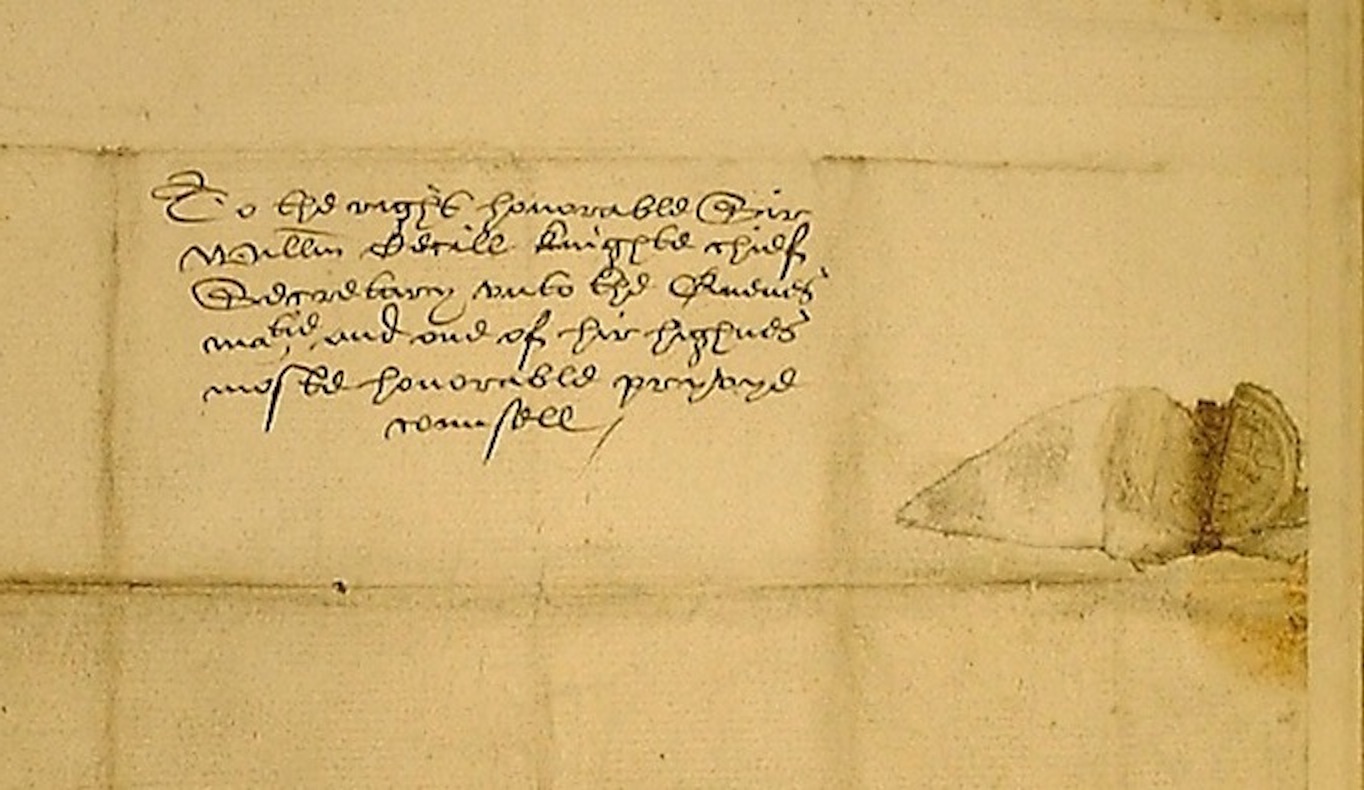 To the right honorable Sir
Willm Cecill knighte chief
Secretary vnto the Quenes
matie, and one of hir highnes
moste honorable pryvye
counsell /